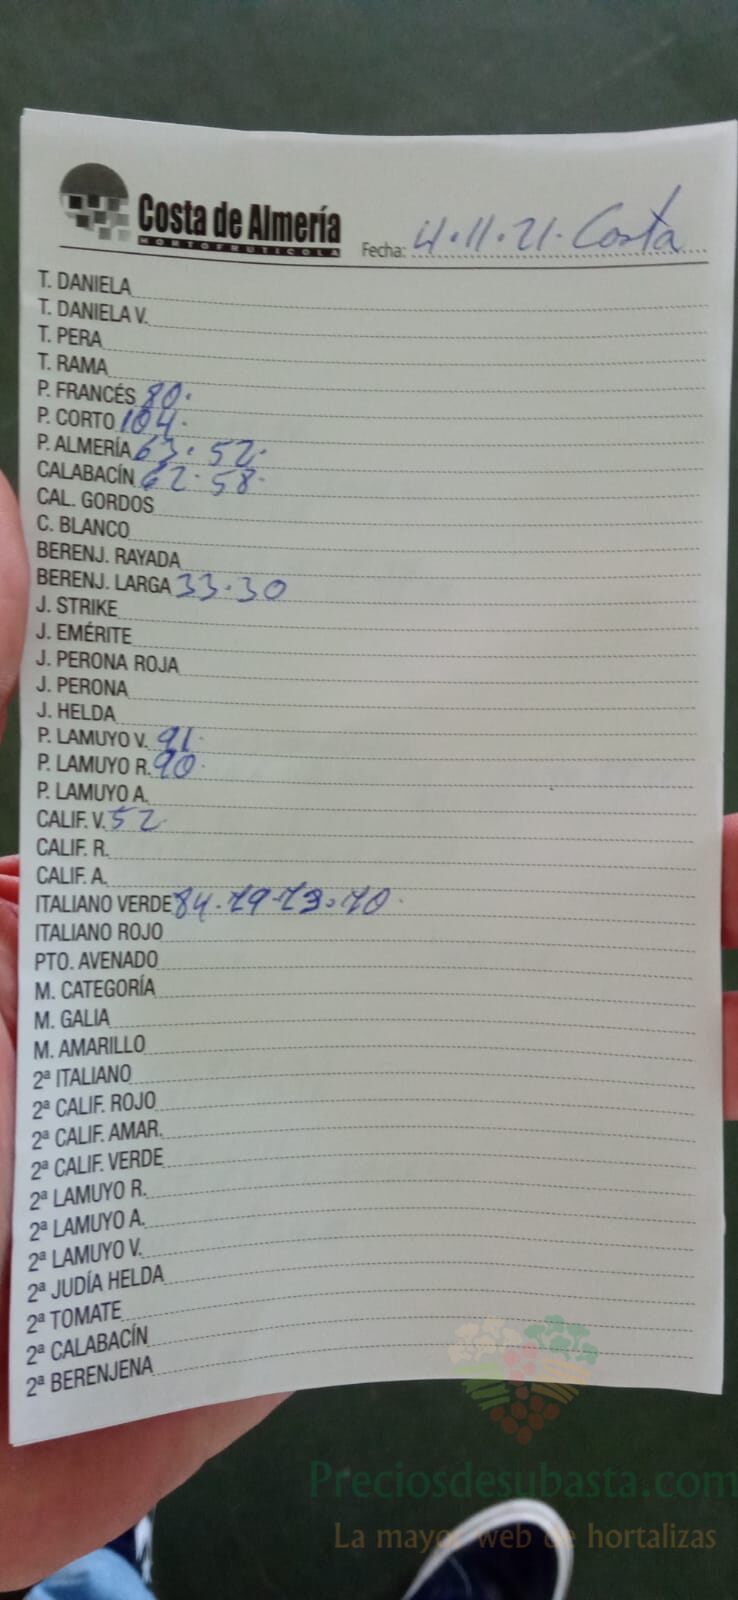 Costa de Almería
HORTOFRUTICOLA
Fecha: 4.11.21. Costa
T. DANIELA
T. DANIELA V.
T. PERA
T. RAMA
P. FRANCÉS 80.
P. CORTO 104.
P. ALMERÍA 63. 52.
CALABACÍN 62. 58.
CAL. GORDOS
C. BLANCO
BERENJ. RAYADA
BERENJ. LARGA 33.30
J. STRIKE
J. EMÉRITE
J. PERONA ROJA
J. PERONA
J. HELDA
P. LAMUYO V. 91.
P. LAMUYO R. 90.
P. LAMUYO A.
CALIF. V. 52
CALIF. R.
CALIF. A.
ITALIANO VERDE 84.79.73.70.
ITALIANO ROJO
PTO. AVENADO
M. CATEGORÍA
M. GALIA
M. AMARILLO
2ª ITALIANO
2ª CALIF. ROJO
2ª CALIF. AMAR.
2ª CALIF. VERDE
2ª LAMUYO R.
2ª LAMUYO A.
2ª LAMUYO V.
2ª JUDÍA HELDA
2ª TOMATE
2ª CALABACÍN
2ª BERENJENA
Preciosdesubasta.com
La mayor web de hortalizas